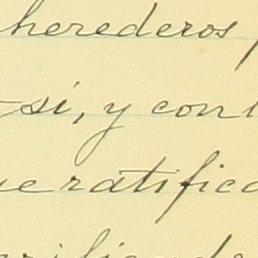 herederos
si, y con
ue ratifica